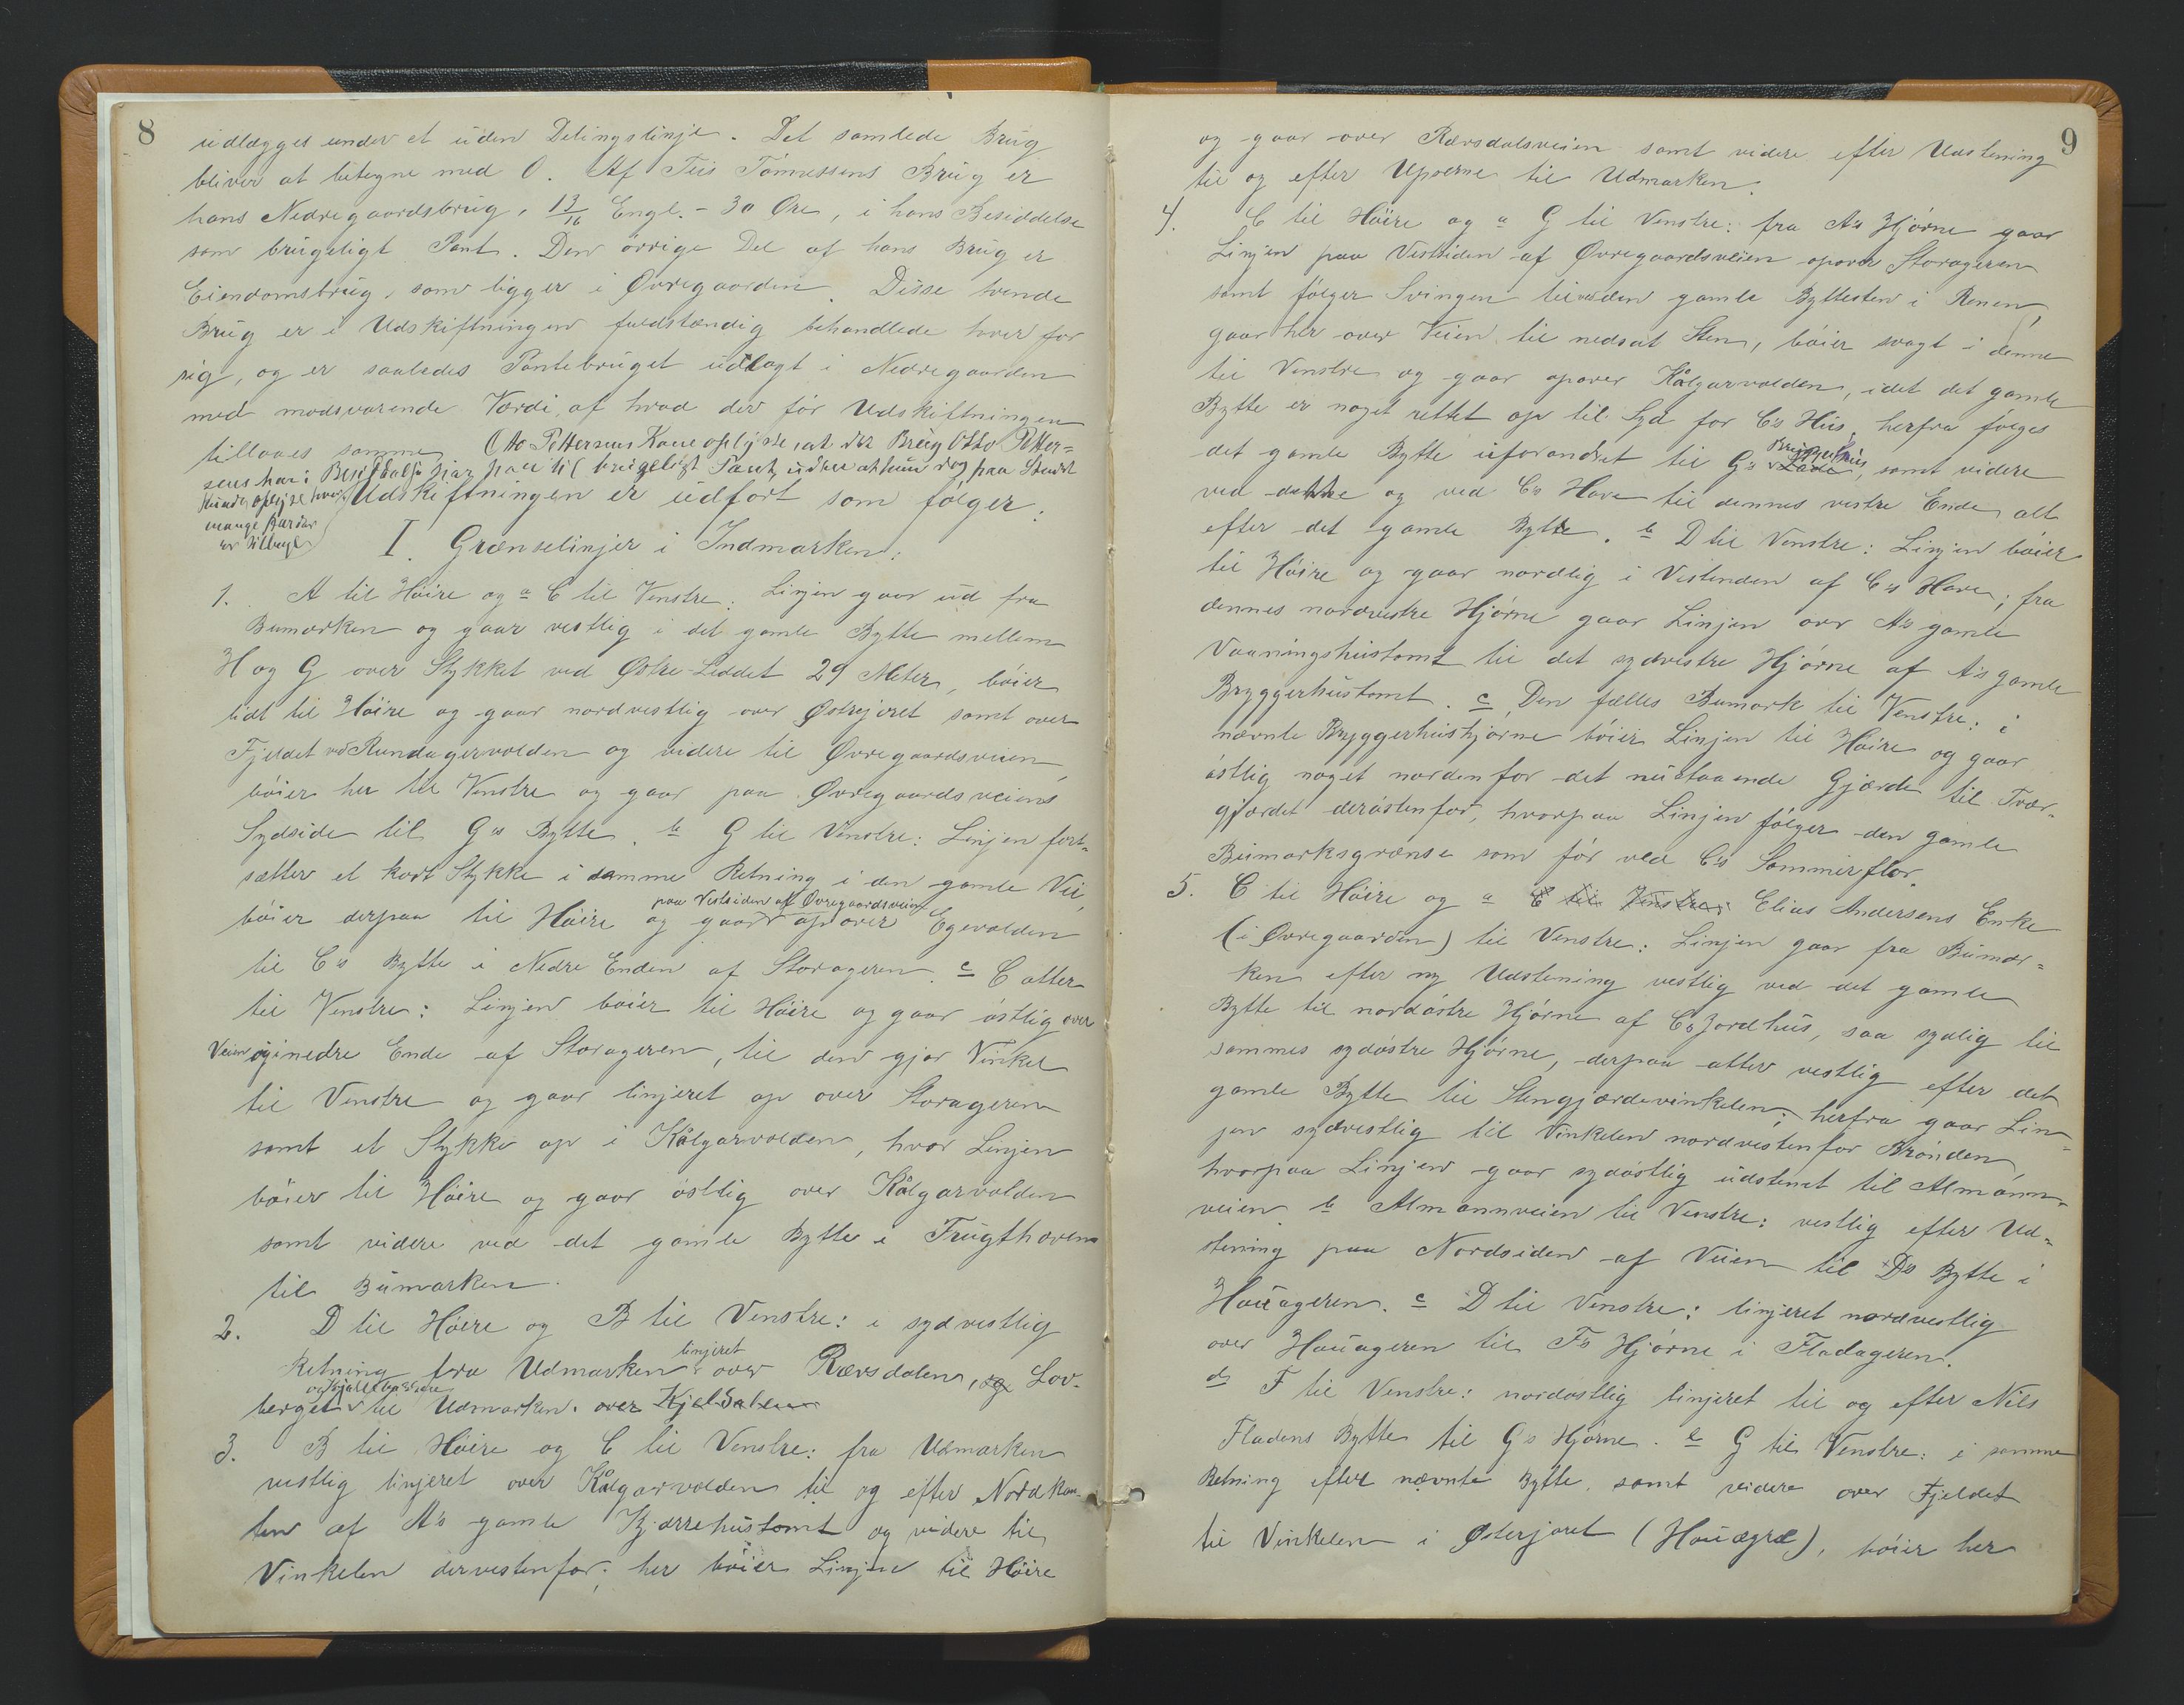 8
udlægges under et uden Delingslinje. Det samlede Brug
bliver at betegne med O. Af Tiis Tönnessens Brug er
hans Nedregaardsbrug, 13/16 Engl. - 30 Øre, i hans Besiddelse
som brugeligt Pant. Den övrige Del af hans Brug er
Eiendomsbrug, som ligger i Øvregaarden. Disse tvende
Brug er i Udskiftningen fuldstændig behandlede hver for
sig, og er saaledes Pantebruget udlagt i Nedregaarden
med modsvarende Værdi af hvad der för Udskiftningen
tillaaes samme. Otto Pettersens Kone oplyste, at det Brug Otto Petter-
sens har i Besiddelse har paa til brugeligt Pant, uden at hun dog paa Stedet
kunde oplyse hvor
mange Pandar
er tilbage
Udskiftningen er udfört som fölger:
I. Grænselinjer i Indmarken:
1. A til Höire og a C til Venstre: Linjen gaar ud fra
Bumarken og gaar vestlig i det gamle Bytte mellem
H og G over Stykket ved Østre-Leddet 29 Meter, böier
lidt til Höire og gaar nordvestlig over Østrejoret samt over
Fjeldet ved Rundagervolden og videre til Øvregaardsveien,
böier her til Venstre og gaar paa Øvregaardsveiens
Sydside til G's Bytte. b G til Venstre: Linjen fort-
sætter et kort Stykke i samme Retning i den gamle Vei,
paa Vestsiden af Øvregaardsveien
böier derpaa til Höire og gaar opover Egevolden
til C's Bytte i Nedre Enden af Storageren. c C atter
til Venstre: Linjen böier til Höire og gaar östlig over
Veien og i nedre Ende af Storageren, til den gjör Vinkel
til Venstre og gaar linjeret op over Storageren
samt et Stykke op i Kålgarvolden, hvor Linjen
böier til Höire og gaar östlig over Kålgarvolden
samt videre ved det gamle Bytte i Frugthaven
til Bumarken.
2. D til Höire og B til Venstre: i sydvestlig
linjeret
Retning fra Udmarken over Rævsdalen, og Lov-
og Kjeldbassene
berget til Udmarken. over Kjeldalen
3. B til Höire og C til Venstre: fra Udmarken
vestlig linjeret over Kålgarvolden til og efter Nordkan-
ten af A's gamle Kjærrehustomt og videre til
Vinkelen dervestenfor; her böier Linjen til Höire
9
og gaar over Rævsdalsveien samt videre efter Udstening
til og efter Uposerne til Udmarken.
4. C til Höire og a G til Venstre: fra A's Hjörne gaar
Linjen paa Vestsiden af Øvregaardsveien opover Storageren
samt fölger Svingen til den gamle Byttesten i Renen,
gaar her over Veien til nedsat Sten, böier svagt i denne
til Venstre og gaar opover Kålgarvolden, idet det gamle
Bytte er noget rettet op til Syd for C's Hus, herfra fölges
Bryggerhus
det gamle Bytte uforandret til G's Lade, samt videre
ved dette og ved C's Have til dennes vestre Ende, alt
efter det gamle Bytte. b D til Venstre: Linjen böier
til Höire og gaar nordlig i Vestenden af C's Have; fra
dennes nordvestre Hjörne gaar Linjen over A's gamle
Vaaningshustomt til det sydvestre Hjörne af A's gamle
Bryggerhustomt. c Den fælles Bumark til Venstre: i
nævnte Bryggerhushjörne böier Linjen til Höire og gaar
östlig noget nordenfor det nustaaende Gjærde til Tvær-
gjærdet derøstenfor, hvorpaa Linjen fölger den gamle
Bumarksgrænse som för ved C's Sommerflor.
5. C til Höire og a E til Venstre: Elias Andersens Enke
(i Øvregaarden) til Venstre: Linjen gaar fra Bumar-
ken efter ny Udstening vestlig ved det gamle
Bytte til nordöstre Hjörne af C's Jordhus, saa sydlig til
sammes sydöstre Hjörne, derpaa atter vestlig efter det
gamle Bytte til Stengjærdevinkelen; herfra gaar Lin-
jen sydvestlig til Vinkelen nordvestenfor Brönden,
hvorpaa Linjen gaar sydöstlig udstenet til Almann-
veien. b Almannveien til Venstre: vestlig efter Ud-
stening paa Nordsiden af Veien til D's Bytte i
Hauageren. c D til Venstre: linjeret nordvestlig
over Hauageren til F's Hjörne i Fladageren.
d F til Venstre: nordostlig linjeret til og efter Nils
Fladens Bytte til G's Hjörne. e G til Venstre: i samme
Retning efter nævnte Bytte, samt videre over Fjeldet
til Vinkelen i Østerjoret (Houægræ), böier her